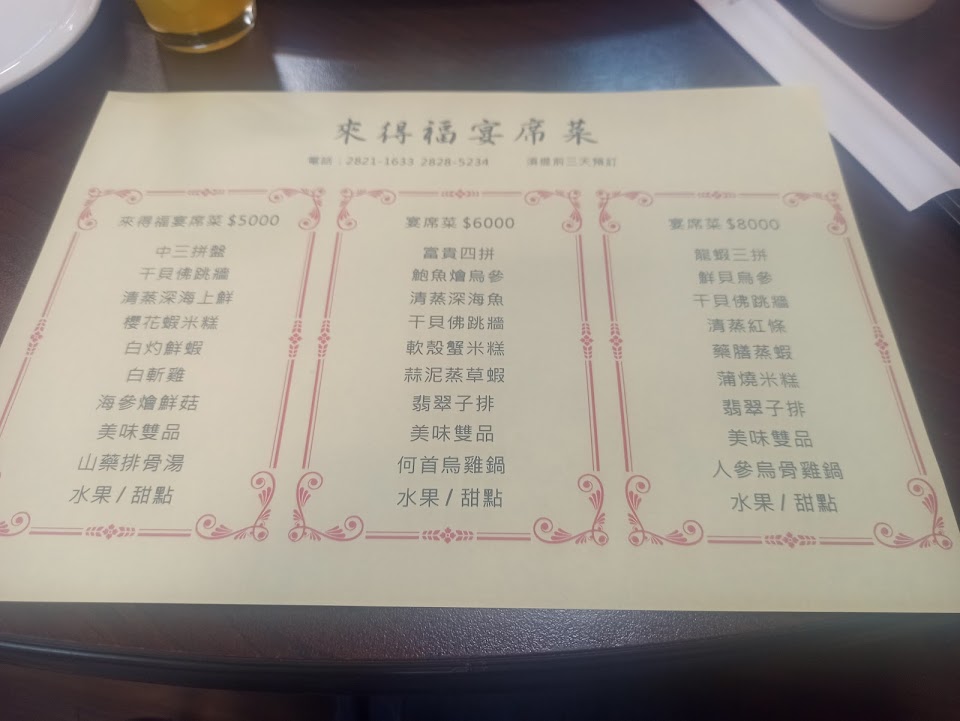 來得福宴席菜
電話：2821-1633 2828-5234 須提前三天預訂
來得福宴席菜 $5000
中三拼盤
干貝佛跳牆
清蒸深海上鮮
櫻花蝦米糕
白灼鮮蝦
白斬雞
海參燴鮮菇
美味雙品
山藥排骨湯
水果 / 甜點
宴席菜 $6000
富貴四拼
鮑魚燴烏參
清蒸深海魚
干貝佛跳牆
軟殼蟹米糕
蒜泥蒸草蝦
翡翠子排
美味雙品
何首烏雞鍋
水果 / 甜點
宴席菜 $8000
龍蝦三拼
鮮貝烏參
干貝佛跳牆
清蒸紅條
藥膳蒸蝦
蒲燒米糕
翡翠子排
美味雙品
人參烏骨雞鍋
水果 / 甜點